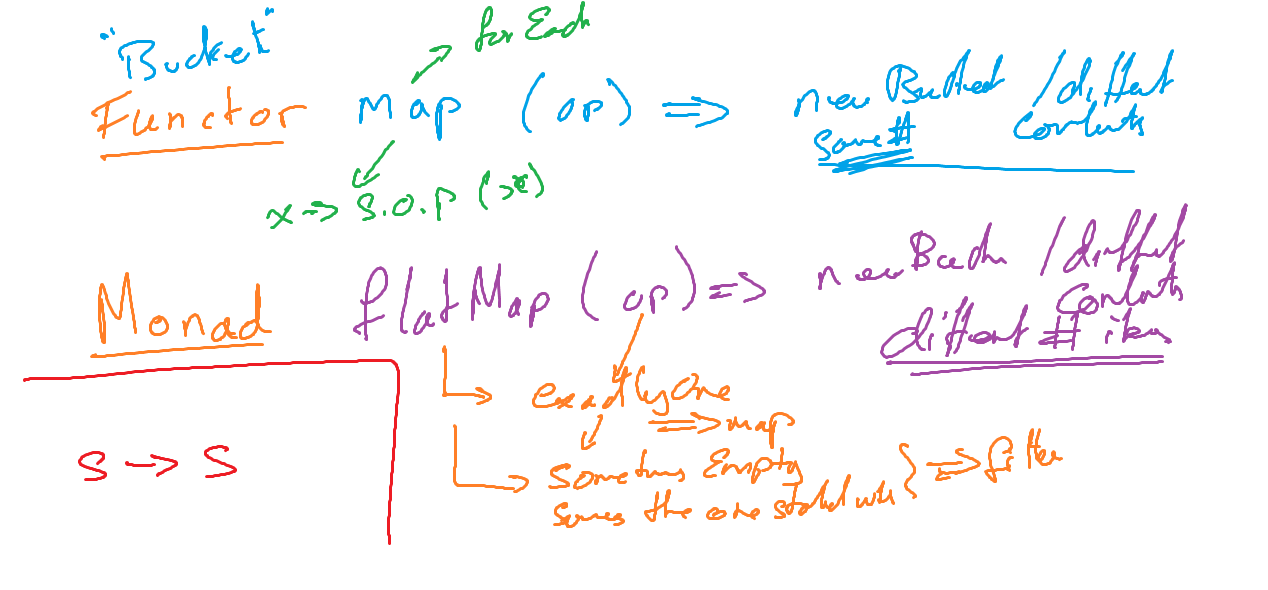 "Bucket"
for Each
Functor map (op) => new Bucket / different contents
same #
x -> S.O.P (x)
Monad flatMap (op) => new Bucket / different contents
different # items
exactly One
=> map
S -> S
Sometimes Empty
Somes the one started with } => filter